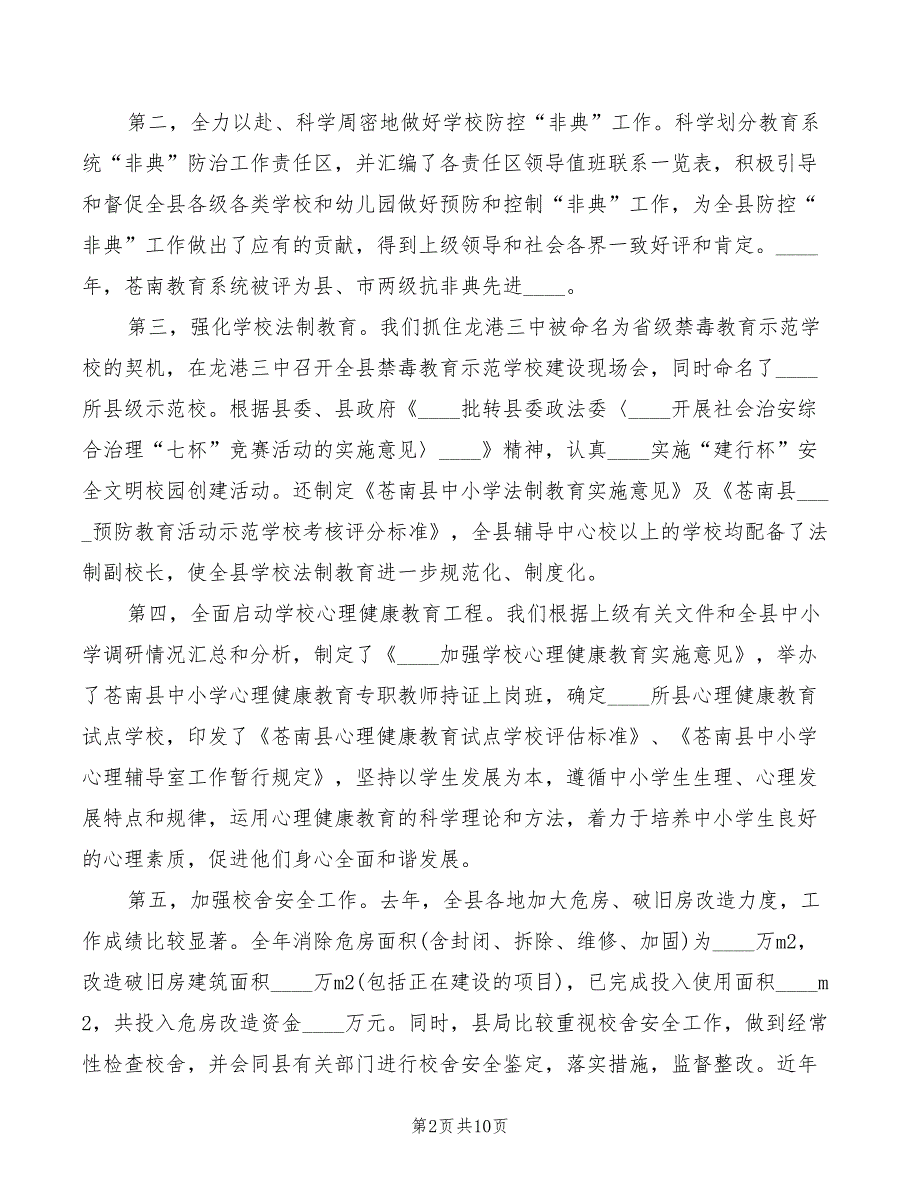 第二，全力以赴、科学周密地做好学校防控“非典”工作。科学划分教育系
统“非典”防治工作责任区，并汇编了各责任区领导值班联系一览表，积极引导
和督促全县各级各类学校和幼儿园做好预防和控制“非典”工作，为全县防控“
非典”工作做出了应有的贡献，得到上级领导和社会各界一致好评和肯定。____
年，苍南教育系统被评为县、市两级抗非典先进____。
第三，强化学校法制教育。我们抓住龙港三中被命名为省级禁毒教育示范学
校的契机，在龙港三中召开全县禁毒教育示范学校建设现场会，同时命名了____
所县级示范校。根据县委、县政府《____批转县委政法委〈____开展社会治安综
合治理“七杯”竞赛活动的实施意见〉____》精神，认真____实施“建行杯”安
全文明校园创建活动。还制定《苍南县中小学法制教育实施意见》及《苍南县___
_预防教育活动示范学校考核评分标准》，全县辅导中心校以上的学校均配备了法
制副校长，使全县学校法制教育进一步规范化、制度化。
第四，全面启动学校心理健康教育工程。我们根据上级有关文件和全县中小
学调研情况汇总和分析，制定了《____加强学校心理健康教育实施意见》，举办
了苍南县中小学心理健康教育专职教师持证上岗班，确定____所县心理健康教育
试点学校，印发了《苍南县心理健康教育试点学校评估标准》、《苍南县中小学
心理辅导室工作暂行规定》，坚持以学生发展为本，遵循中小学生生理、心理发
展特点和规律，运用心理健康教育的科学理论和方法，着力于培养中小学生良好
的心理素质，促进他们身心全面和谐发展。
第五，加强校舍安全工作。去年，全县各地加大危房、破旧房改造力度，工
作成绩比较显著。全年消除危房面积(含封闭、拆除、维修、加固)为____万m2，
改造破旧房建筑面积____万m2(包括正在建设的项目)，已完成投入使用面积____m
2，共投入危房改造资金____万元。同时，县局比较重视校舍安全工作，做到经常
性检查校舍，并会同县有关部门进行校舍安全鉴定，落实措施，监督整改。近年
第2页共10页